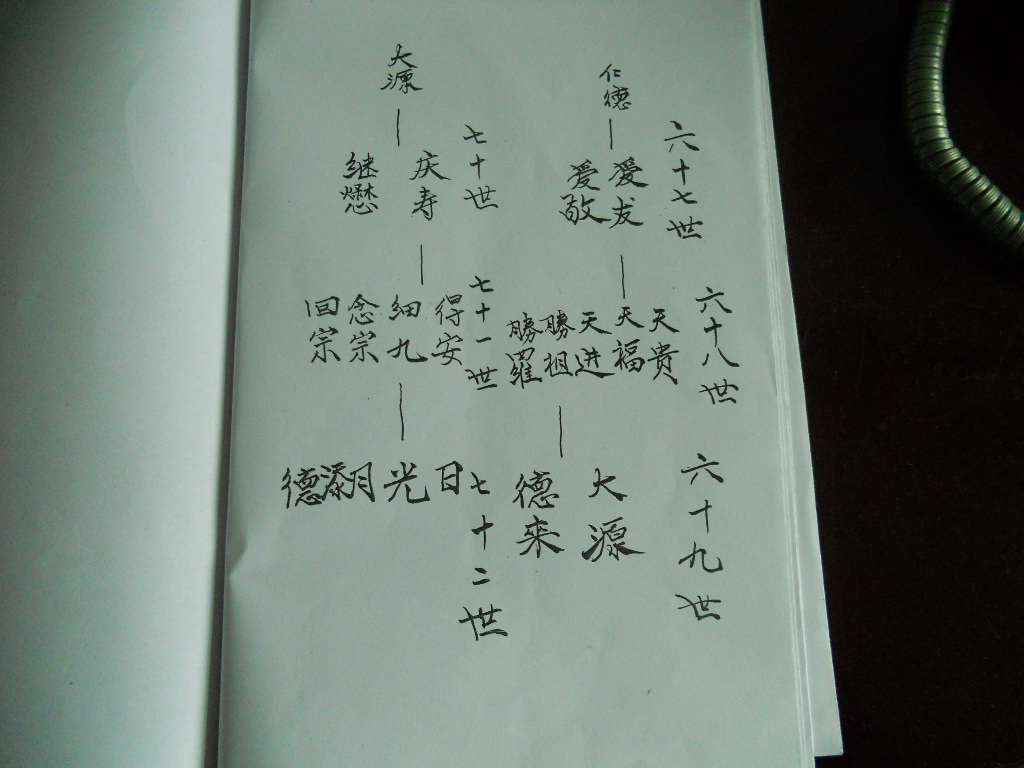 六十七世
仁德
爱发
爱敬
六十八世
天贵
天福
天进
勝祖
勝羅
六十九世
大源
德来
七十世
大源
庆寿
继懋
七十一世
得安
细九
念宗
回宗
七十二世
日
光
月
添
德